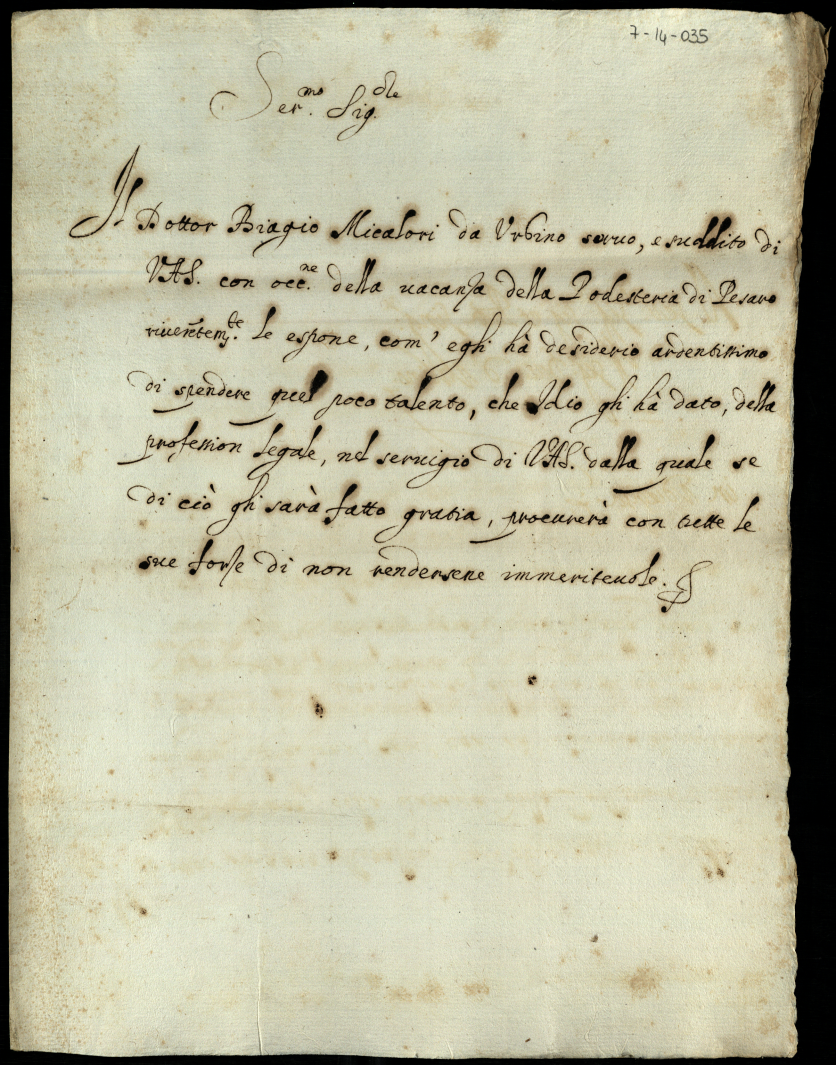 7-14-035
Ser.mo Sig.ore
Il Dottor Biagio Micalori da Urbino seruo, e suddito di
V.A.S. con occ.ne della uacanza della Podesteria di Pesaro
riuerentem.te le espone, com' egli hà desiderio ardentissimo
di spendere quel poco talento, che Idio gli hà dato, della
profession legale, nel seruigio di V.A.S. dalla quale se
di ciò gli sarà fatto gratia, procurerà con tutte le
sue forze di non rendersene immeriteuole.